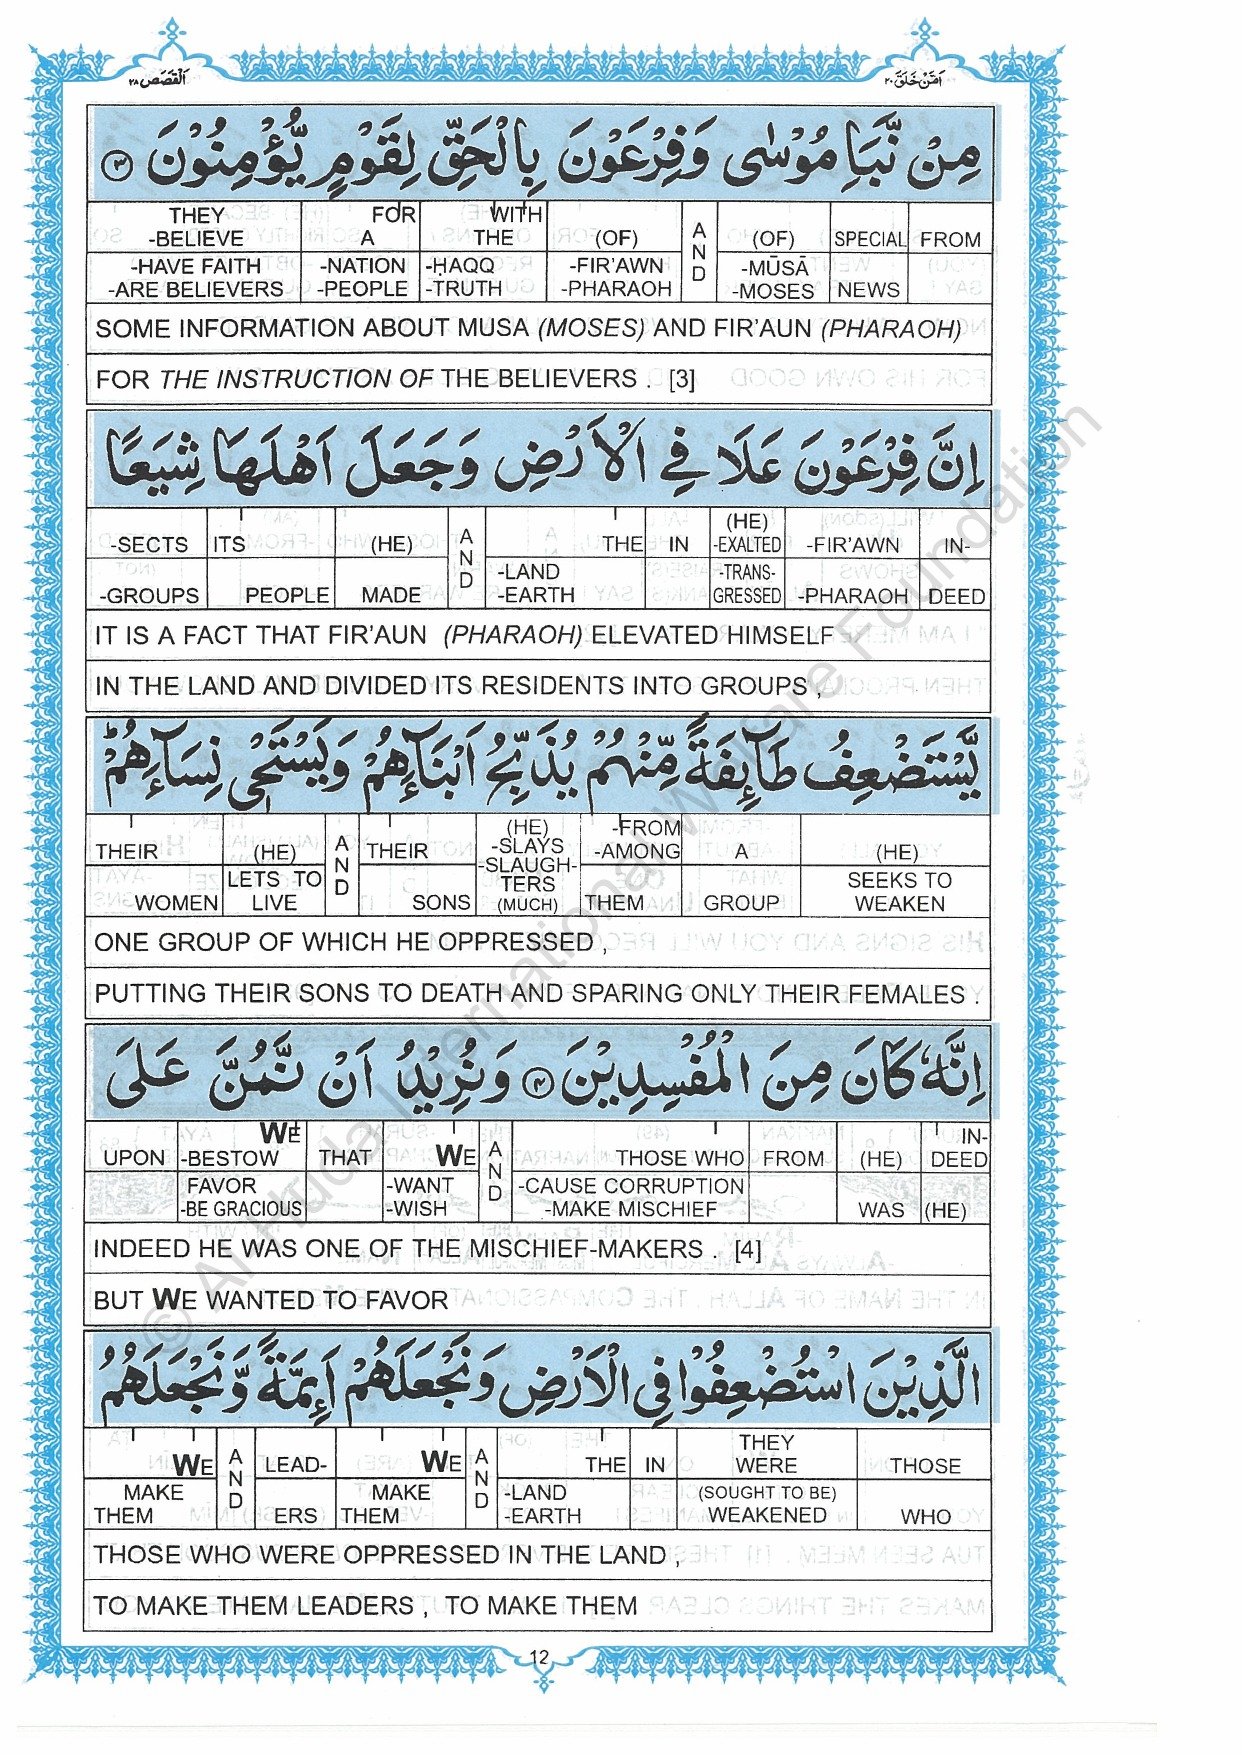 اَلْقَصَص ٢٨
اَمَّنْ خَلَقَ ٢٠
مِنْ نَّبَاِ مُوْسٰى وَفِرْعَوْنَ بِالْحَقِّ لِقَوْمٍ يُّؤْمِنُوْنَ ٣
THEY FOR WITH
-BELIEVE A THE (OF) AND (OF) SPECIAL FROM
-HAVE FAITH -NATION -ḤAQQ -FIR'AWN -MŪSĀ
-ARE BELIEVERS -PEOPLE -TRUTH -PHARAOH -MOSES NEWS
SOME INFORMATION ABOUT MUSA (MOSES) AND FIR'AUN (PHARAOH)
FOR THE INSTRUCTION OF THE BELIEVERS . [3]
اِنَّ فِرْعَوْنَ عَلَا فِي الْاَرْضِ وَجَعَلَ اَهْلَهَا شِيَعًا
(HE)
-SECTS ITS (HE) AND THE IN -EXALTED -FIR'AWN IN-
-LAND -TRANS-
-GROUPS PEOPLE MADE -EARTH GRESSED -PHARAOH DEED
IT IS A FACT THAT FIR'AUN (PHARAOH) ELEVATED HIMSELF
IN THE LAND AND DIVIDED ITS RESIDENTS INTO GROUPS ,
يَّسْتَضْعِفُ طَآئِفَةً مِّنْهُمْ يُذَبِّحُ اَبْنَآءَهُمْ وَيَسْتَحْيٖ نِسَآءَهُمْ ؕ
(HE) -FROM
THEIR (HE) AND THEIR -SLAYS -AMONG A (HE)
-SLAUGH-
LETS TO TERS SEEKS TO
WOMEN LIVE SONS (MUCH) THEM GROUP WEAKEN
ONE GROUP OF WHICH HE OPPRESSED ,
PUTTING THEIR SONS TO DEATH AND SPARING ONLY THEIR FEMALES .
اِنَّهٗ كَانَ مِنَ الْمُفْسِدِيْنَ ٤ وَنُرِيْدُ اَنْ نَّمُنَّ عَلَى
WE IN-
UPON -BESTOW THAT WE AND THOSE WHO FROM (HE) DEED
FAVOR -WANT -CAUSE CORRUPTION
-BE GRACIOUS -WISH -MAKE MISCHIEF WAS (HE)
INDEED HE WAS ONE OF THE MISCHIEF-MAKERS . [4]
BUT WE WANTED TO FAVOR
الَّذِيْنَ اسْتُضْعِفُوْا فِي الْاَرْضِ وَنَجْعَلَهُمْ اَئِمَّةً وَّنَجْعَلَهُمُ
THEY
WE AND LEAD- WE AND THE IN WERE THOSE
MAKE MAKE -LAND (SOUGHT TO BE)
THEM ERS THEM -EARTH WEAKENED WHO
THOSE WHO WERE OPPRESSED IN THE LAND ,
TO MAKE THEM LEADERS , TO MAKE THEM
12
© Al Huda International Welfare Foundation